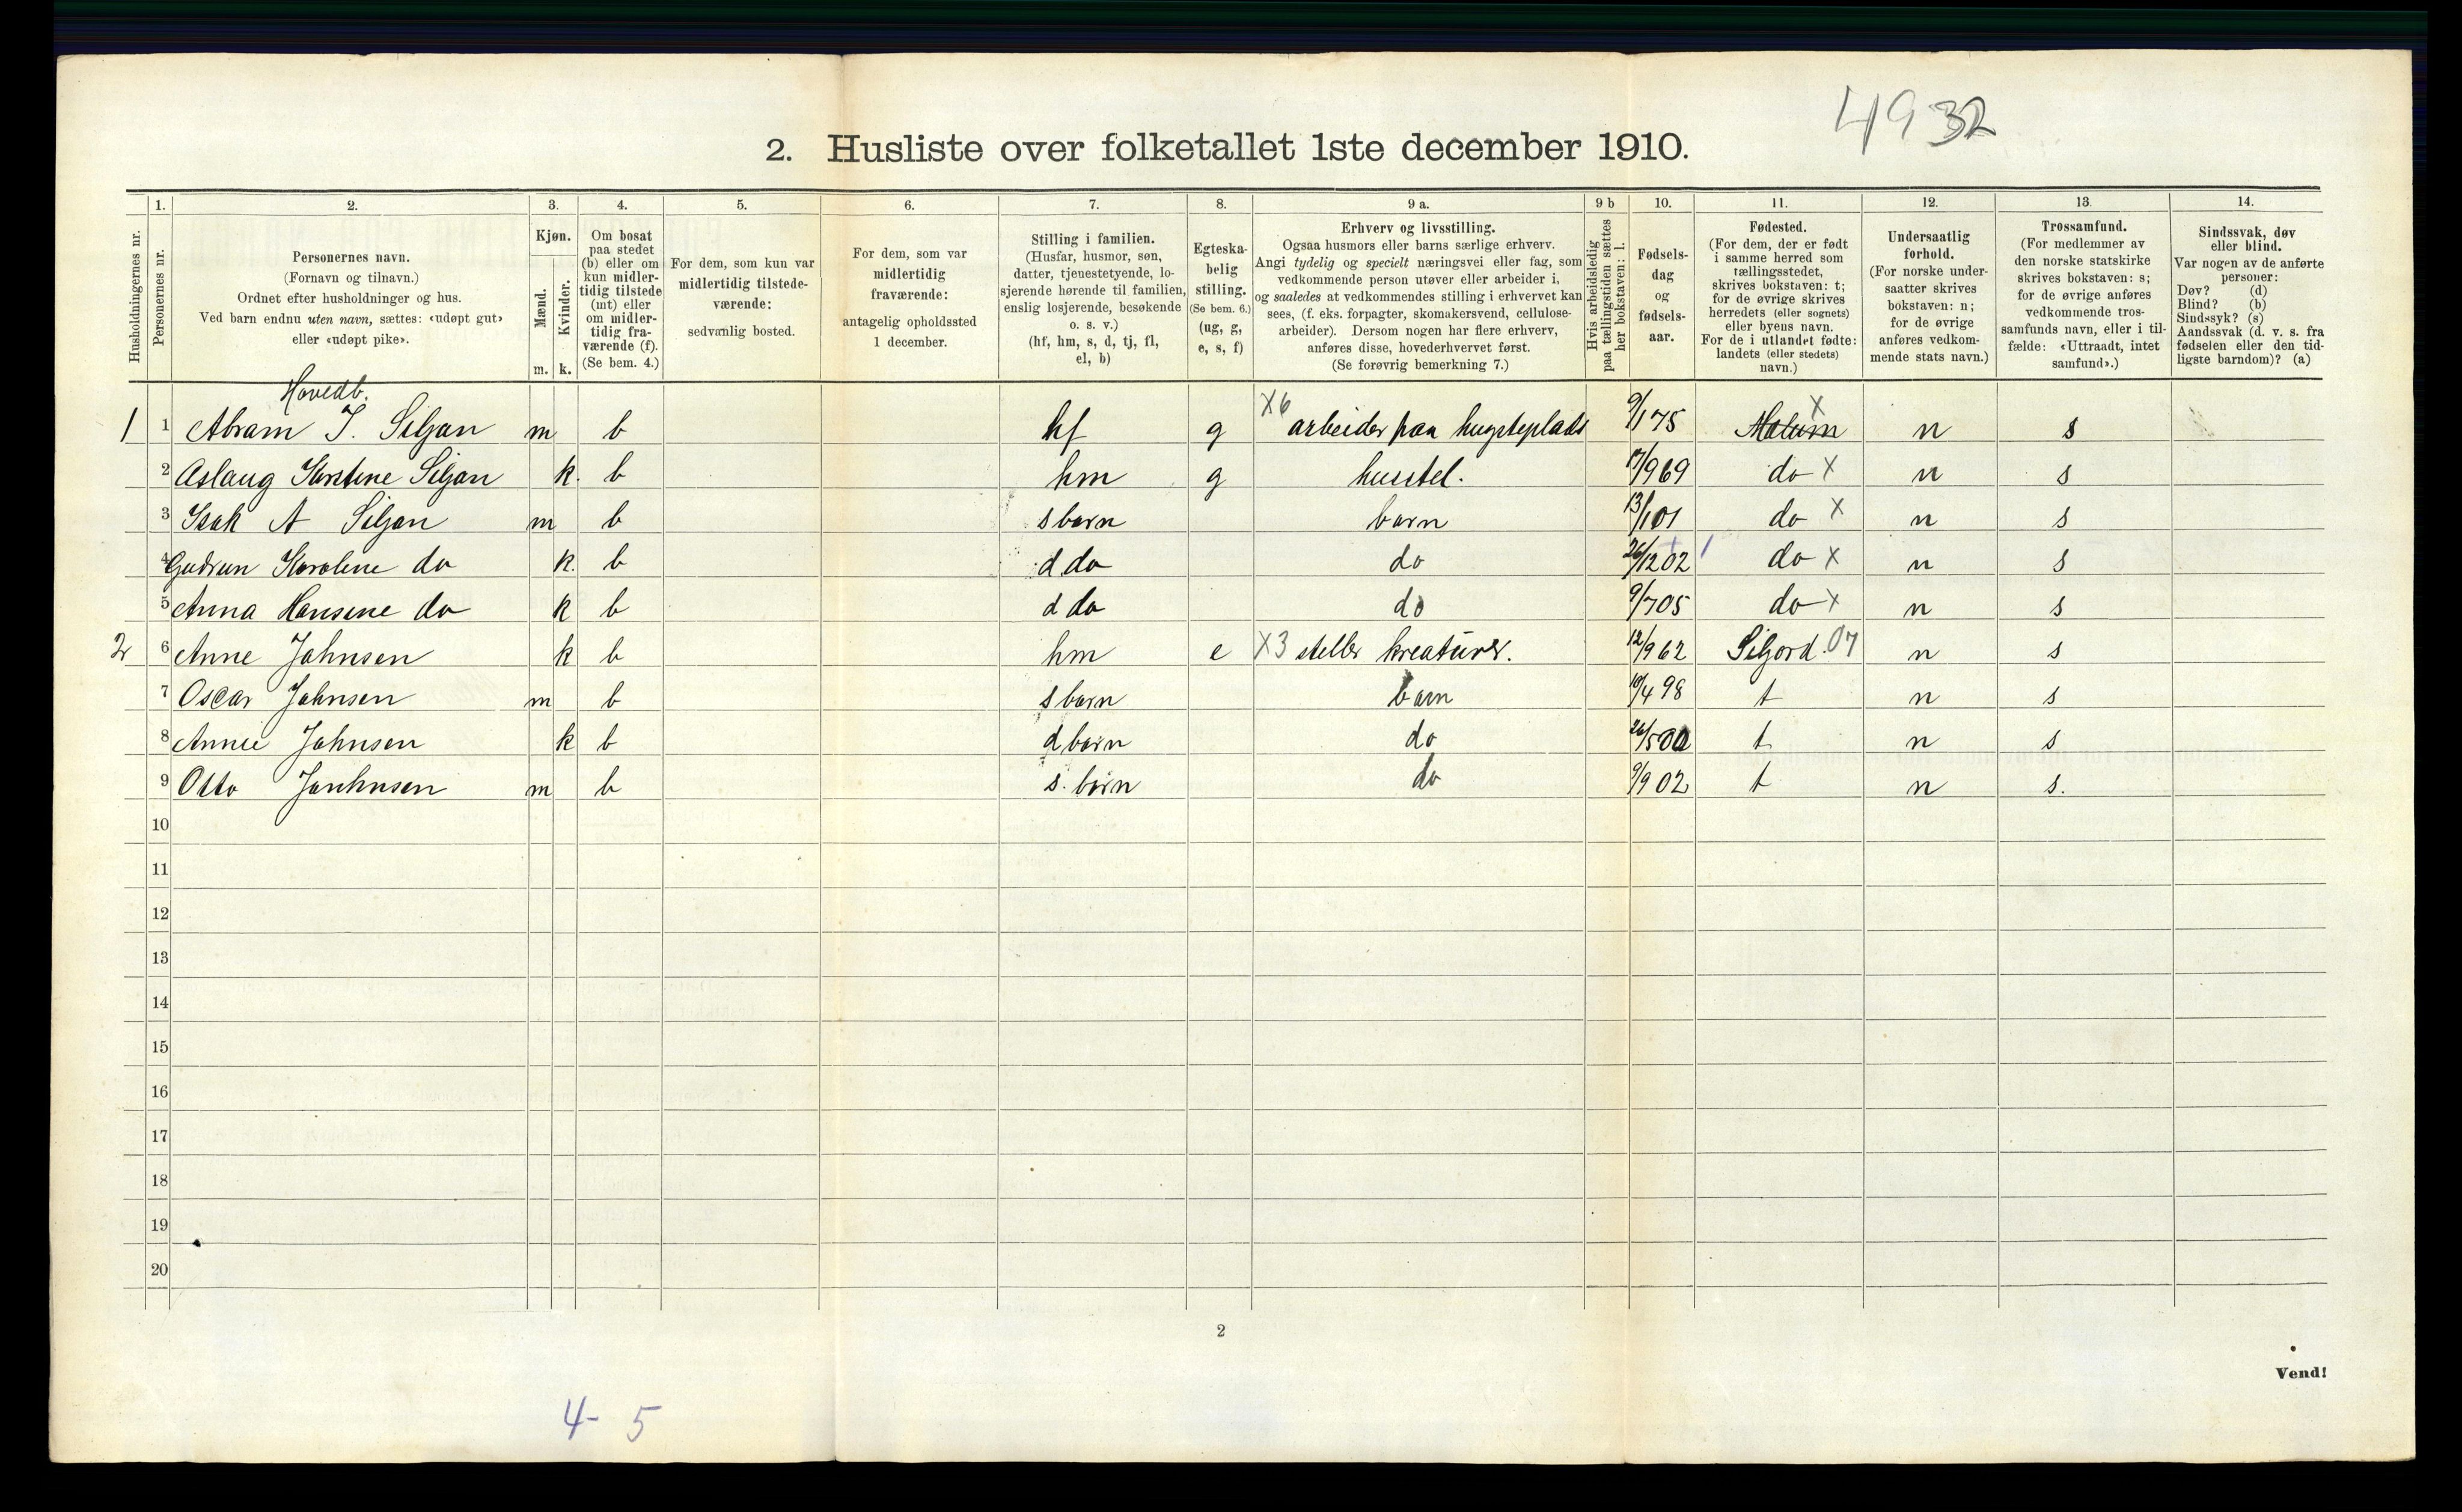 4932
2. Husliste over folketallet 1ste december 1910.
1. 2. 3. 4. 5. 6. 7. 8. 9 a. 9 b 10. 11. 12. 13. 14.
Husholdningernes nr.
Personernes nr.
Personernes navn.
(Fornavn og tilnavn.)
Ordnet efter husholdninger og hus.
Ved barn endnu uten navn, sættes: «udøpt gut»
eller «udøpt pike».
Kjøn.
Mænd.
Kvinder.
m. k.
Om bosat
paa stedet
(b) eller om
kun midler-
tidig tilstede
(mt) eller
om midler-
tidig fra-
værende (f).
(Se bem. 4.)
For dem, som kun var
midlertidig tilstede-
værende:
sedvanlig bosted.
For dem, som var
midlertidig
fraværende:
antagelig opholdssted
1 december.
Stilling i familien.
(Husfar, husmor, søn,
datter, tjenestetyende, lo-
sjerende hørende til familien,
enslig losjerende, besøkende
o. s. v.)
(hf, hm, s, d, tj, fl,
el, b)
Egteska-
belig
stilling.
(Se bem. 6.)
(ug, g,
e, s, f)
Erhverv og livsstilling.
Ogsaa husmors eller barns særlige erhverv.
Angi tydelig og specielt næringsvei eller fag, som
vedkommende person utøver eller arbeider i,
og saaledes at vedkommendes stilling i erhvervet kan
sees, (f. eks. forpagter, skomakersvend, cellulose-
arbeider). Dersom nogen har flere erhverv,
anføres disse, hovederhvervet først.
(Se forøvrig bemerkning 7.)
Hvis arbeidsledig
paa tællingstiden sættes
her bokstaven: l.
Fødsels-
dag
og
fødsels-
aar.
Fødested.
(For dem, der er født
i samme herred som
tællingsstedet,
skrives bokstaven: t;
for de øvrige skrives
herredets (eller sognets)
eller byens navn.
For de i utlandet fødte:
landets (eller stedets)
navn.)
Undersaatlig
forhold.
(For norske under-
saatter skrives
bokstaven: n;
for de øvrige
anføres vedkom-
mende stats navn.)
Trossamfund.
(For medlemmer av
den norske statskirke
skrives bokstaven: s;
for de øvrige anføres
vedkommende tros-
samfunds navn, eller i til-
fælde: «Uttraadt, intet
samfund».)
Sindssvak, døv
eller blind.
Var nogen av de anførte
personer:
Døv? (d)
Blind? (b)
Sindssyk? (s)
Aandssvak (d. v. s. fra
fødselen eller den tid-
ligste barndom)? (a)
Hovedb.
1 1 Abram I. Siljan m b hf g X6 arbeider paa hugsteplads 9/1 75 Melum X n s
2 Aslaug Kirstine Siljan k. b hm g husstel. 17/9 69 do X n s
3 Isak A Siljan m b s barn barn 13/1 01 do X n s
4 Gudrun Karoline do k. b d do do 26/12 02 1 do X n s
5 Anna Hansine do k b d do do 9/7 05 do X n s
2 6 Anne Johnsen k b hm e X3 steller kreaturer. 12/9 62 Siljord. 07 n s
7 Oscar Johnsen m b s barn barn 10/4 98 t n s
8 Annie Johnsen k b d barn do 26/5 00 t n s
9 Otto Jonhnsen m b s. barn do 9/9 02 t n s.
10
11
12
13
14
15
16
17
18
19
20
2
Vend!
4- 5